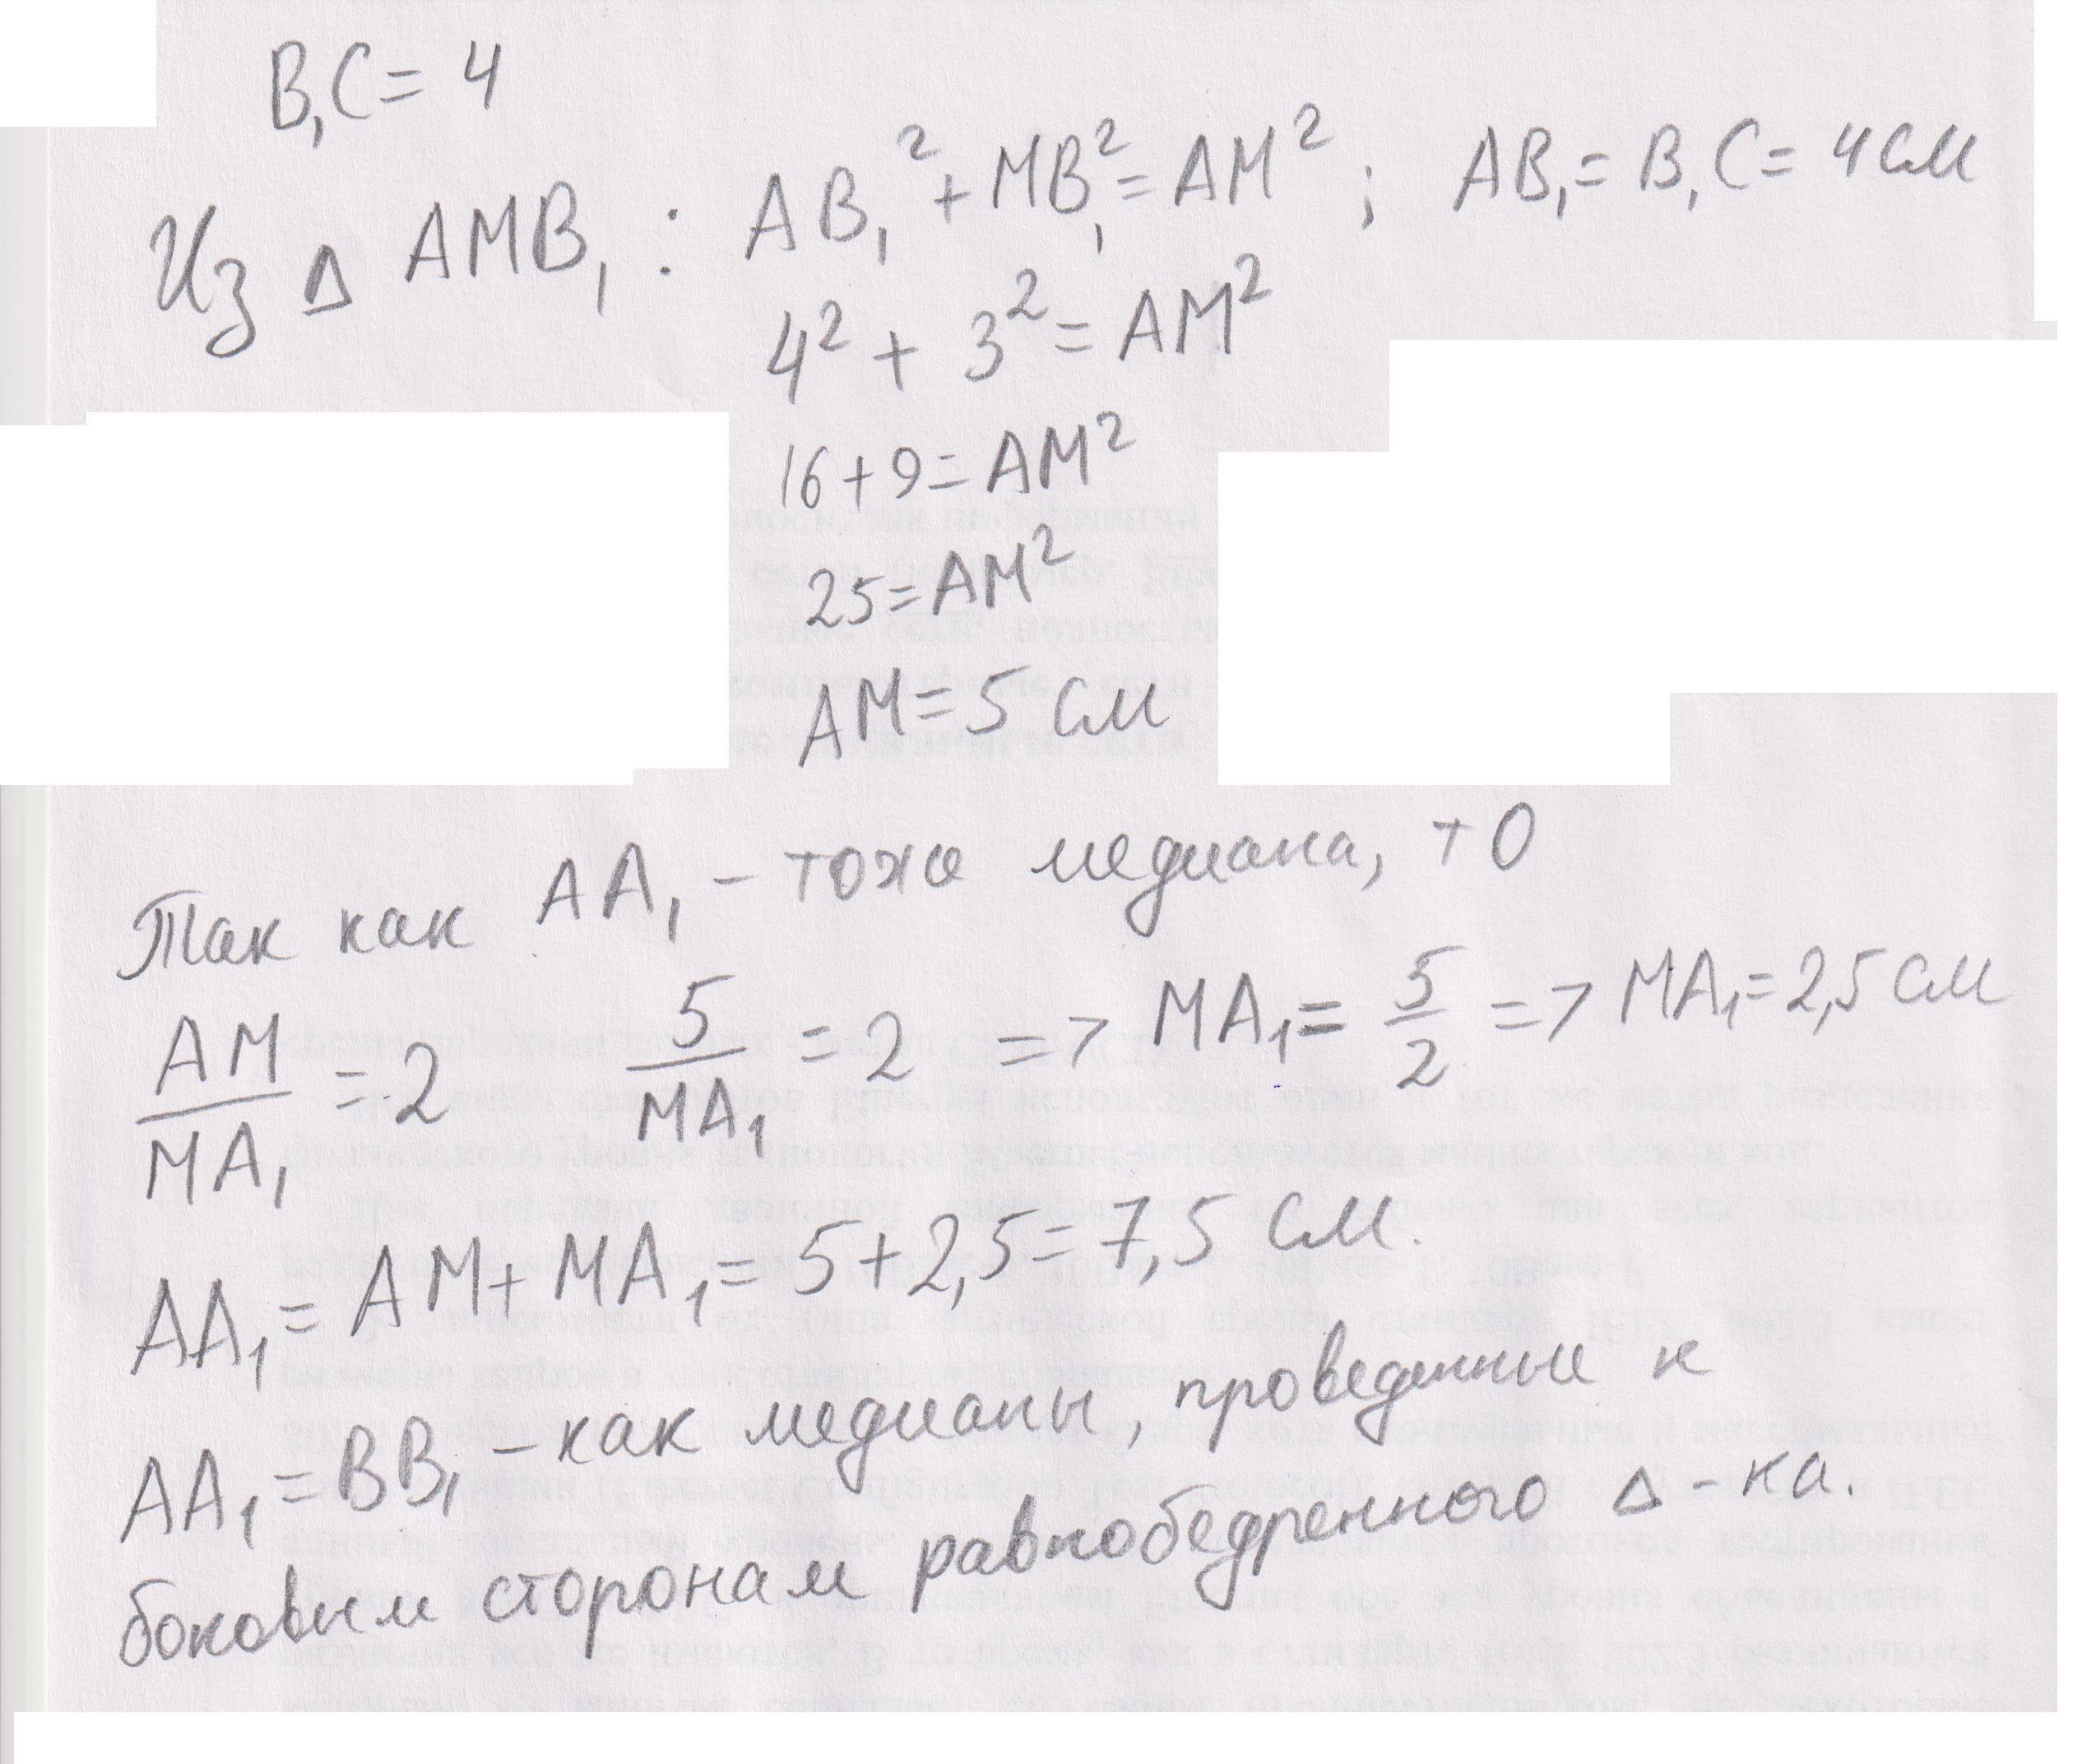 B₁C = 4
Из Δ AMB₁ : AB₁² + MB₁² = AM² ; AB₁ = B₁C = 4 см
4² + 3² = AM²
16 + 9 = AM²
25 = AM²
AM = 5 см
Так как AA₁ – тоже медиана, то
AM/MA₁ = 2 5/MA₁ = 2 => MA₁ = 5/2 => MA₁ = 2,5 см
AA₁ = AM + MA₁ = 5 + 2,5 = 7,5 см.
AA₁ = BB₁ – как медианы, проведенные к
боковым сторонам равнобедренного Δ-ка.